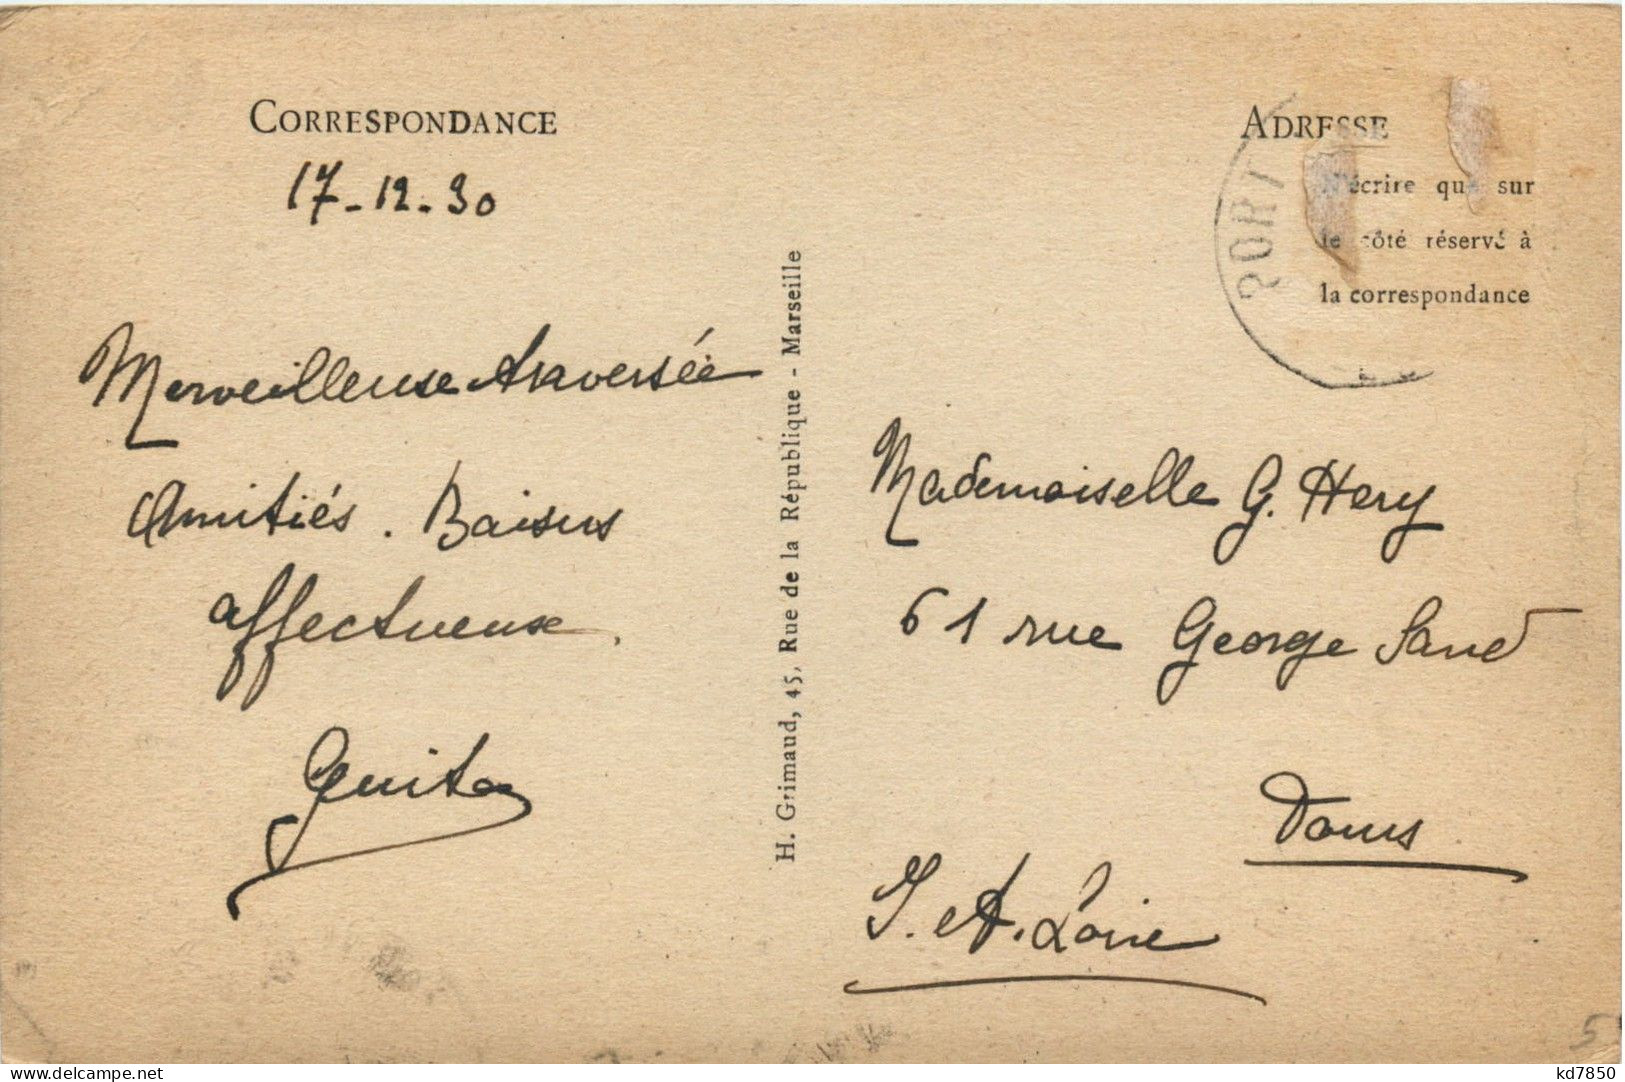 CORRESPONDANCE
17-12-30
Merveilleuse traversée
Amitiés. Baisers
affectueux.
Guita
H. Grimaud, 45, Rue de la République - Marseille
ADRESSE
N'écrire que sur
le côté réservé à
la correspondance
PORT
Mademoiselle G. Hery
61 rue George Sand
Tours
I. et. Loire
5
kd7850
delcampe.net